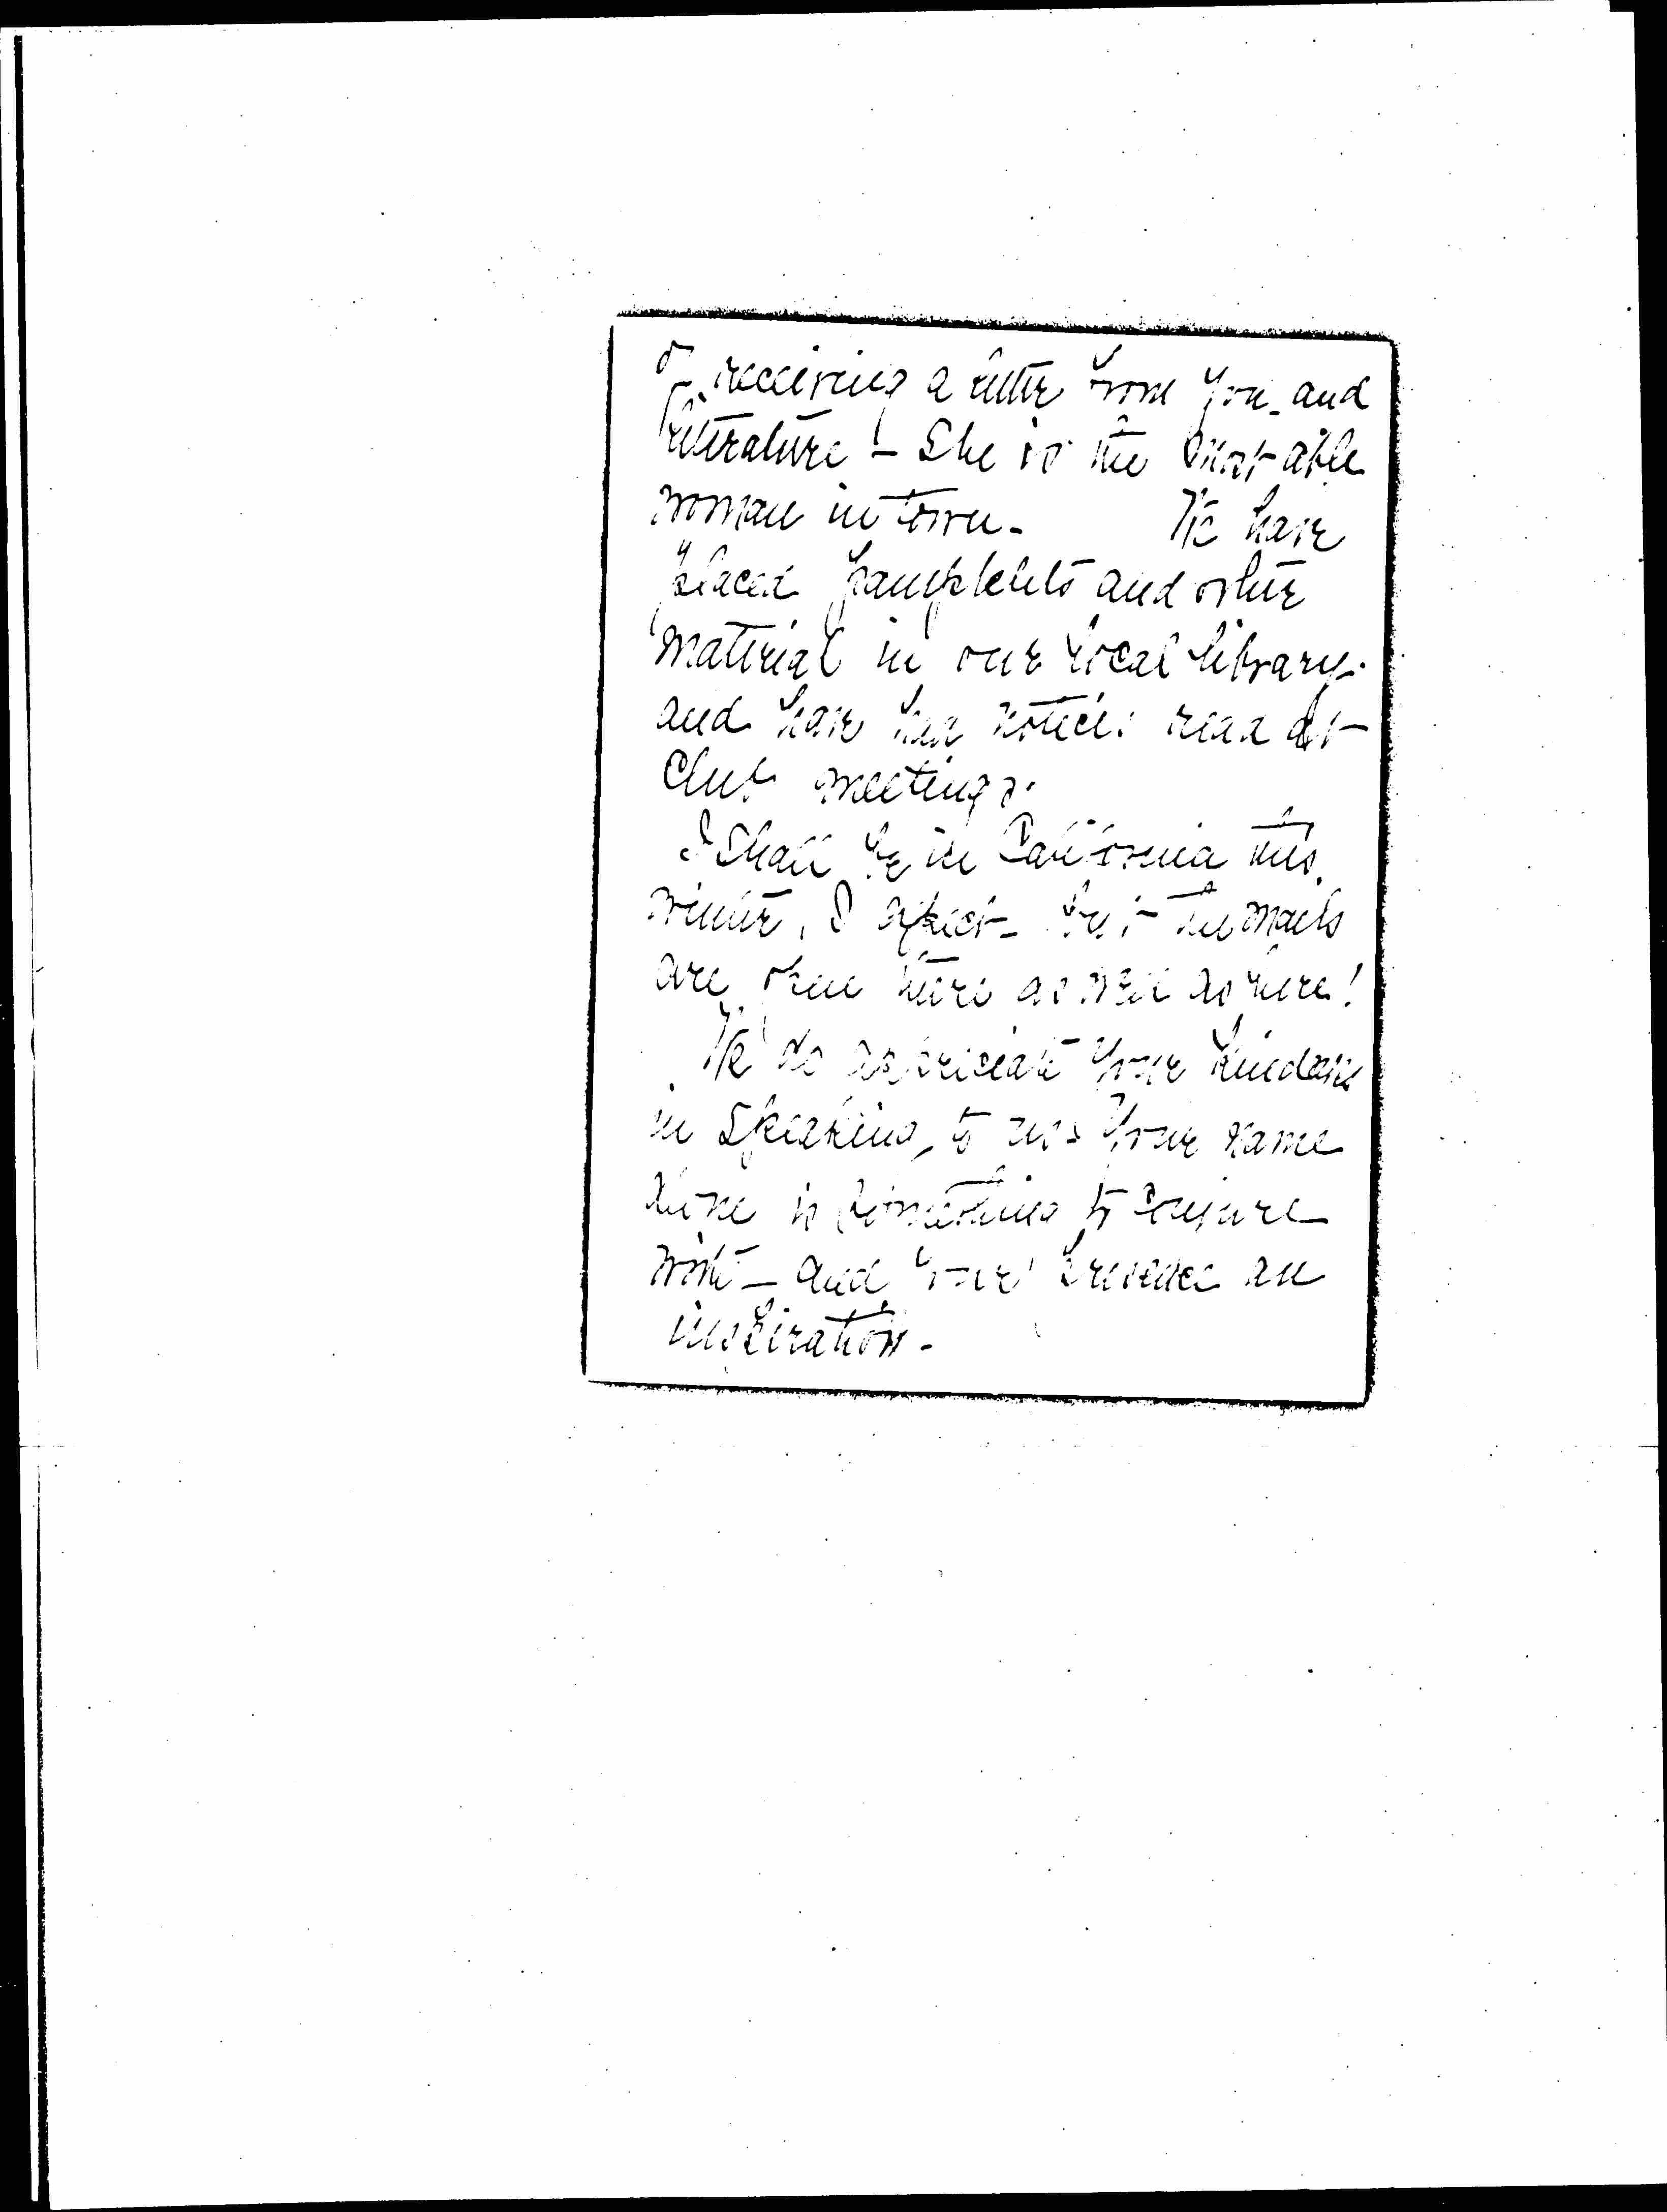 of receiving a letter from you and
literature – She is the most able
woman in town – We have
placed pamphlets and other
material in our local library –
and have had notices read at
Club meetings.
I shall be in California this
winter, I expect – but the mails
are open there as well as here!
We do appreciate your kindness
in speaking to us – your name
here is something to conjure
with – and your presence an
inspiration –